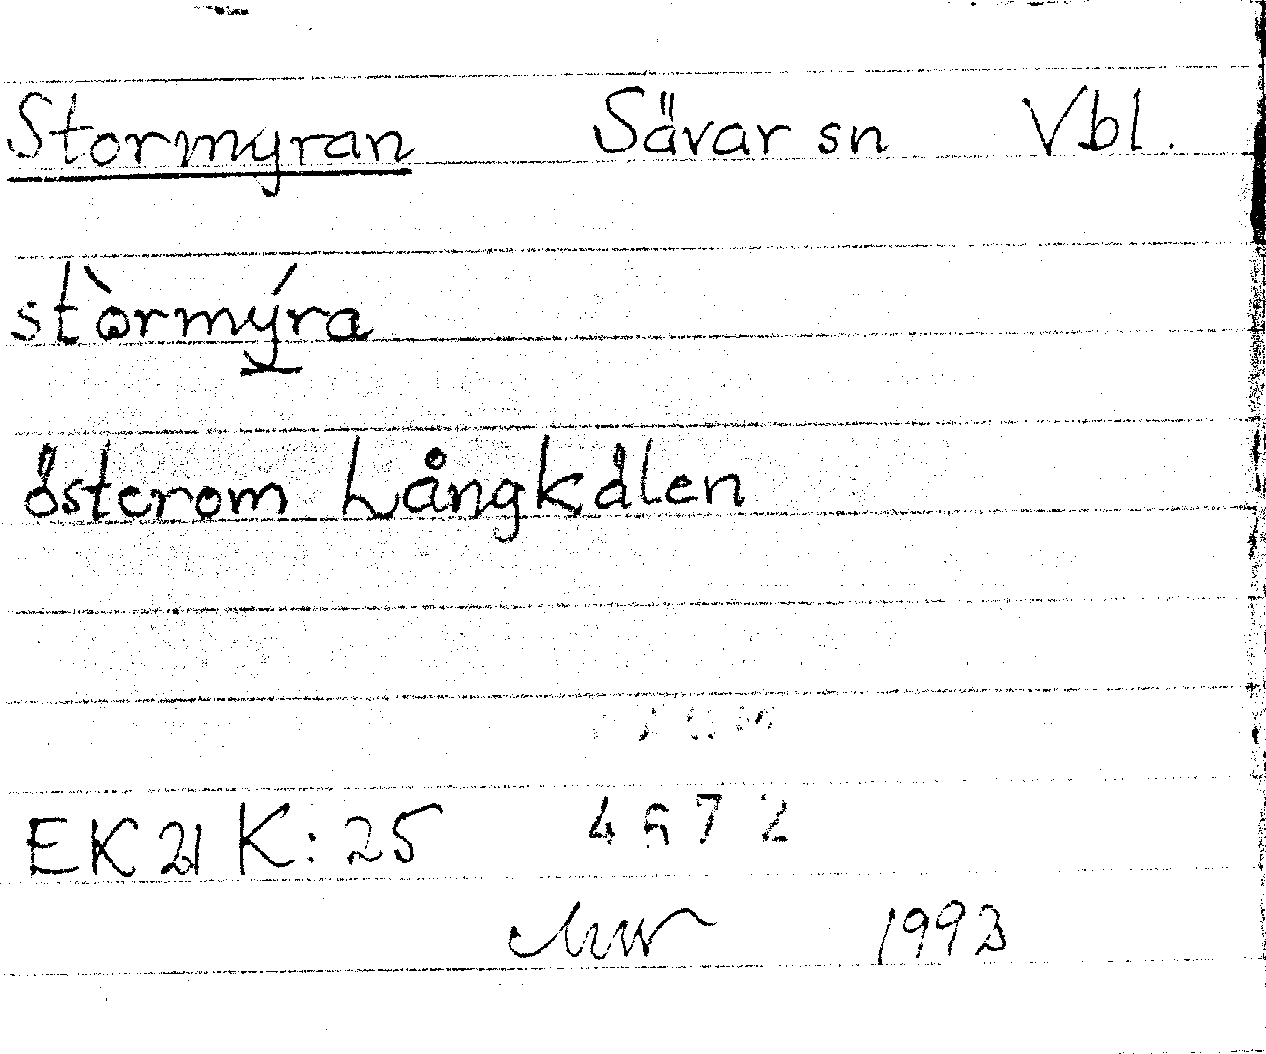 Stormyran Sävar sn Vbl.
stòrmýra
österom Långkålen
EK21 K:25 4672
1993